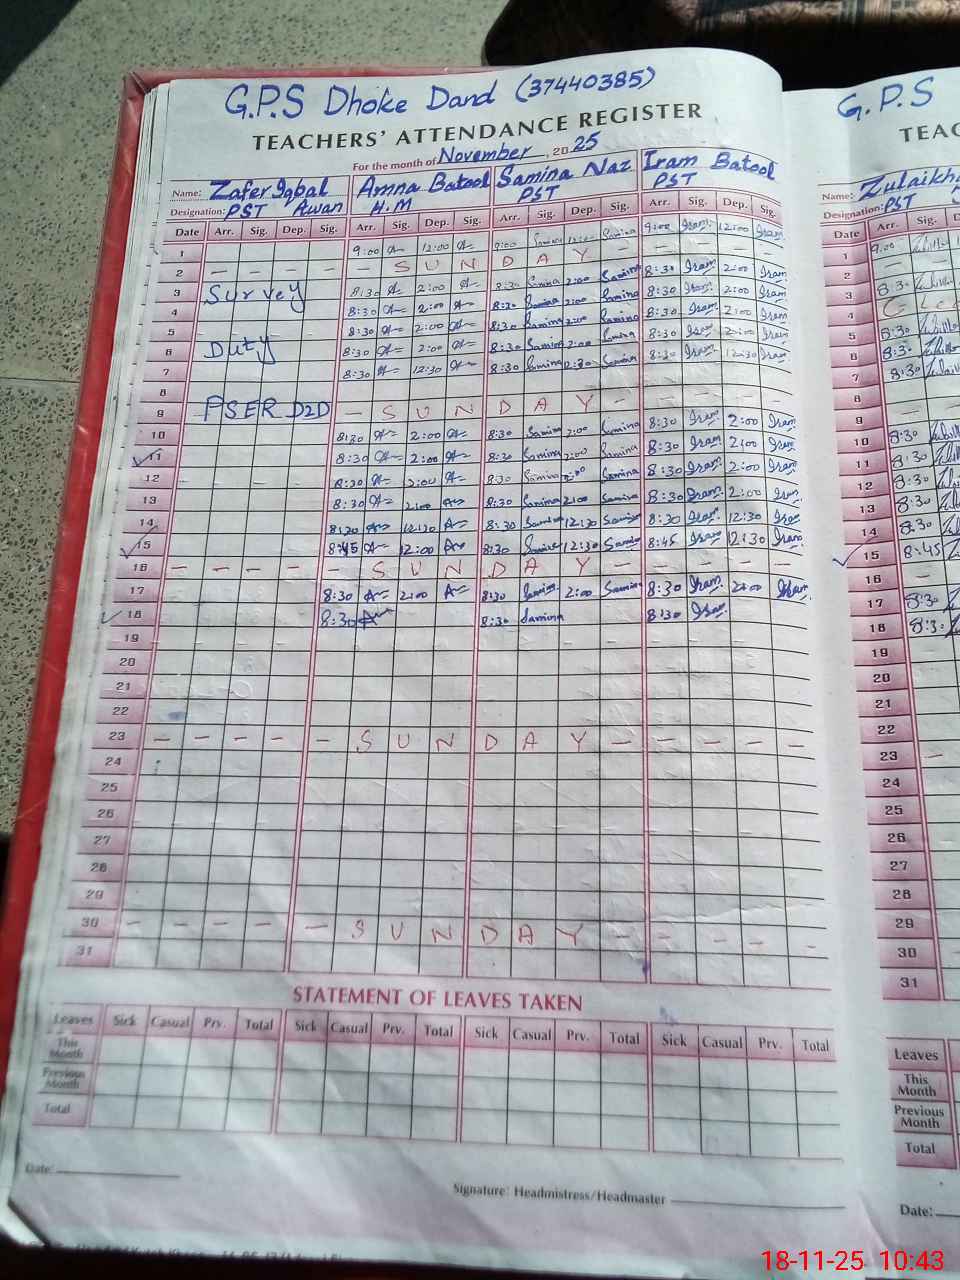 G.P.S Dhoke Dand (37440385)
TEACHERS' ATTENDANCE REGISTER
For the month of November, 2025
Name: Zafer Iqbal Amna Batool Samina Naz Iram Batool
Designation: PST Awan H.M PST PST
Date Arr. Sig. Dep. Sig. Arr. Sig. Dep. Sig. Arr. Sig. Dep. Sig. Arr. Sig. Dep. Sig.
1 9:00 12:00 9:00 Samina Samina 9:00 Iram 12:00 Iram
2 — — — — — S U N D A Y — — — — —
3 Survey 8:30 2:00 8:30 Samina 2:00 Samina 8:30 Iram 2:00 Iram
4 8:30 2:00 8:30 Samina 2:00 Samina 8:30 Iram 2:00 Iram
5 8:30 2:00 8:30 Samina 2:00 Samina 8:30 Iram 2:00 Iram
6 Duty 8:30 2:00 8:30 Samina 2:00 Samina 8:30 Iram 2:00 Iram
7 8:30 12:30 8:30 Samina 12:30 Samina 8:30 Iram 12:30 Iram
8
9 PSER D2D — S U N D A Y —
10 8:30 2:00 8:30 Samina 2:00 Samina 8:30 Iram 2:00 Iram
11 8:30 2:00 8:30 Samina 2:00 Samina 8:30 Iram 2:00 Iram
12 8:30 2:00 8:30 Samina 2:00 Samina 8:30 Iram 2:00 Iram
13 8:30 2:00 8:30 Samina 2:00 Samina 8:30 Iram 2:00 Iram
14 8:30 12:30 8:30 Samina 12:30 Samina 8:30 Iram 12:30 Iram
15 8:45 12:00 8:30 Samina 12:30 Samina 8:45 Iram 12:30 Iram
16 — — — — — S U N D A Y — — — — —
17 8:30 2:00 8:30 Samina 2:00 Samina 8:30 Iram 2:00 Iram
18 8:30 8:30 Samina 8:30 Iram
19
20
21
22
23 — — — — — S U N D A Y — — — — —
24
25
26
27
28
29
30 — — — — — S U N D A Y — — — — —
31
STATEMENT OF LEAVES TAKEN
Leaves Sick Casual Prv. Total Sick Casual Prv. Total Sick Casual Prv. Total Sick Casual Prv. Total
This Month
Previous Month
Total
Date:
Signature: Headmistress/Headmaster
G.P.S
Name:
Designation: PST
Date Arr. Sig.
1 9:00
2 —
3 8:30
4
5 8:30
6 8:30
7 8:30
8
9 —
10 8:30
11 8:30
12 8:30
13 8:30
14 8:30
15 8:45
16 —
17 8:30
18 8:30
19
20
21
22
23 —
24
25
26
27
28
29
30
31
Leaves
This Month
Previous Month
Total
Date:
18-11-25 10:43